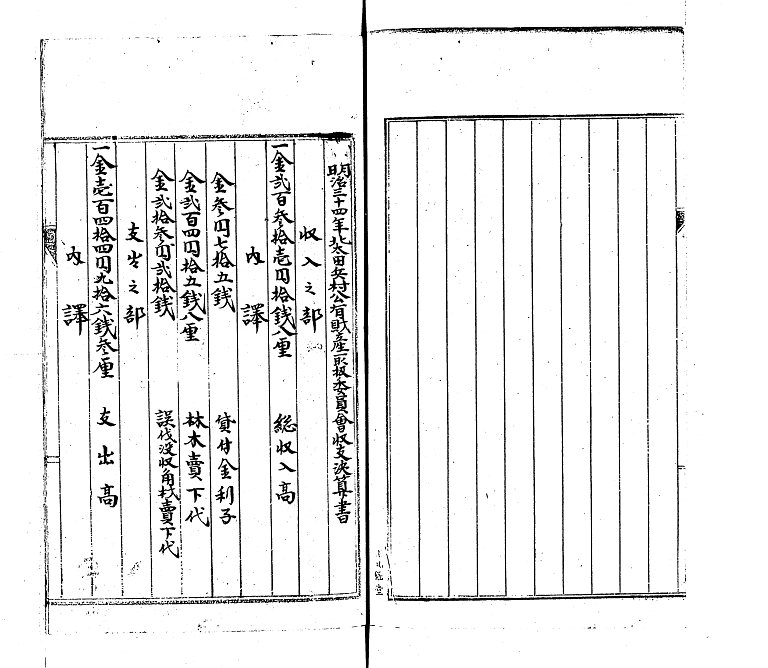 明治三十四年北太田兵村公有財産取扱委員會収支決算書
収入之部
一金弐百参拾壱円拾銭八厘　総収入高
内譯
金参円七拾五銭　貸付金利子
金弐百四円拾五銭八厘　林木賣下代
金弐拾参円弐拾銭　誤伐没収角材賣下代
支出之部
一金壱百四拾四円九拾六銭参厘　支出高
内譯